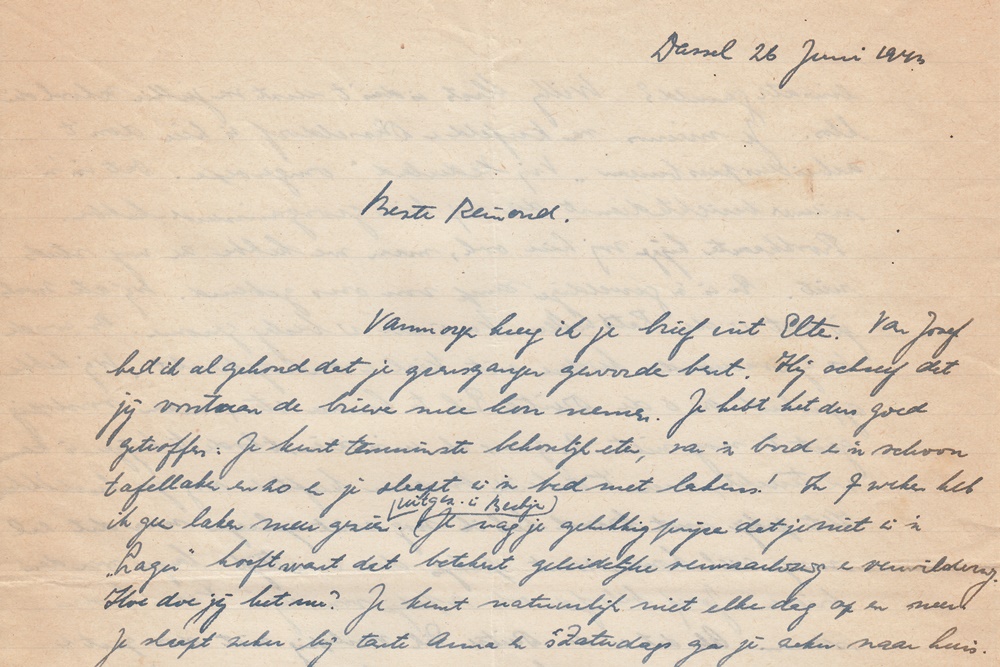 Dassel 26 Juni 1943
Beste Reimond.
Vanmorge kreeg ik je brief uit Elte. Van Josef
had ik al gehoord dat je grensganger geworde bent. Hij schreef dat
jij voortaan de brieve mee kon nemen. Je hebt het dus goed
getroffen. Je kunt tenminste behoorlijk ete, van 'n bord e 'n schoon
tafellaken en zo en je slaapt i 'n bed met lakens! In 7 weken heb
uitgez. i Berlijn
ik gee laken meer gezien. Je mag je gelukkig prijze dat je niet i 'n
"Lager" hoeft want dat betekent geleidelijke verwaarlozing e verwildering.
Hoe doe jij het nu? Je kunt natuurlijk niet elke dag op en neer
Je slaapt zeker bij tante Anna en 's Zaterdags ga je zeker naar huis.